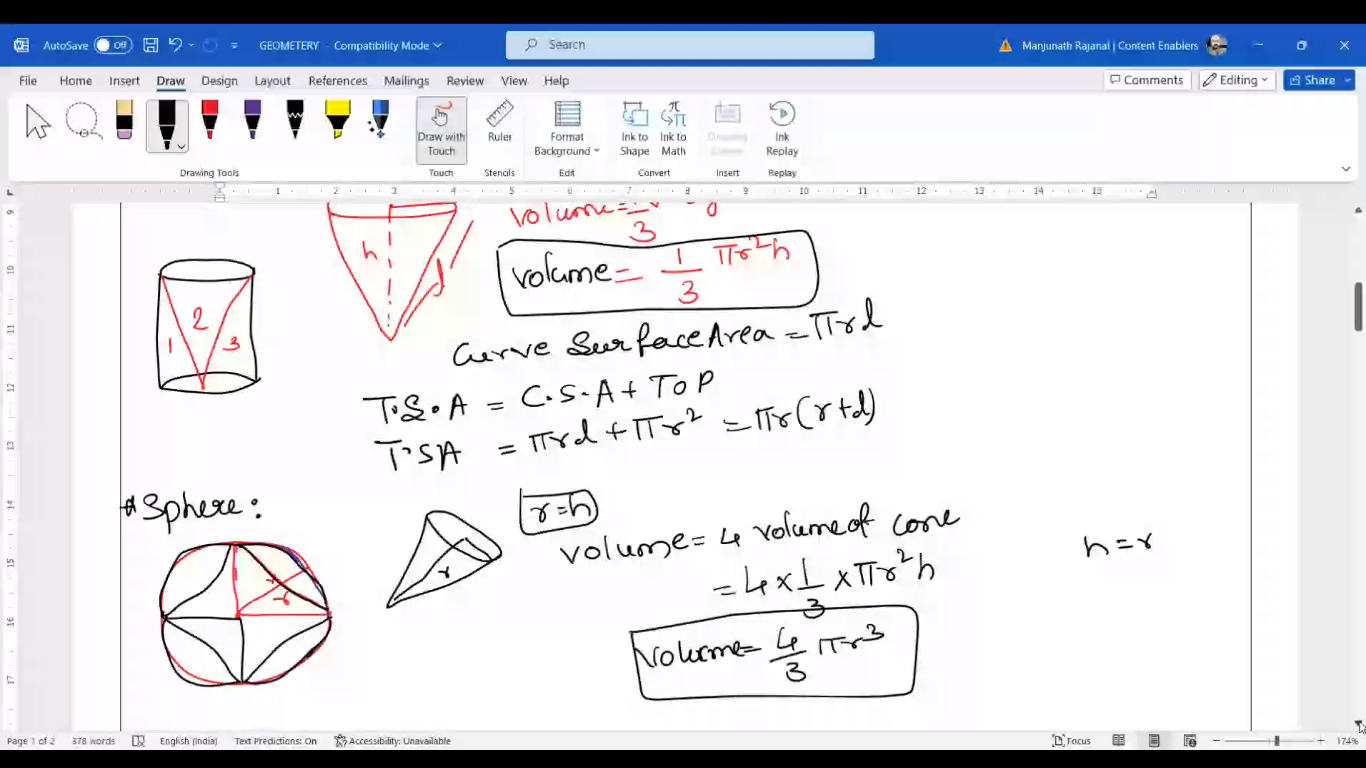 AutoSave Off GEOMETERY - Compatibility Mode Search Manjunath Rajanal | Content Enablers
File Home Insert Draw Design Layout References Mailings Review View Help Comments Editing Share
Draw with Touch Ruler Format Background Ink to Shape Ink to Math Drawing Canvas Ink Replay
Drawing Tools Touch Stencils Edit Convert Insert Replay
1 2 3 4 5 6 7 8 9 10 11 12 13 14 15
9
10
11
12
13
14
15
16
17
volume=1/3
h
l
volume = 1/3 πr²h
1 2 3
Curve Surface Area = πrl
T.S.A = C.S.A + TOP
TSA = πrl + πr² = πr(r+l)
*Sphere:
r=h
volume = 4 volume of cone
h=r
= 4 × 1/3 × πr²h
r
r
r
volume = 4/3 πr³
Page 1 of 2 378 words English (India) Text Predictions: On Accessibility: Unavailable Focus 174%